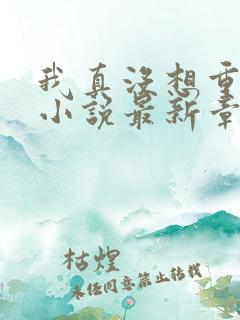 我真没想重
小说最新章
枯煌
未经同意禁止转载